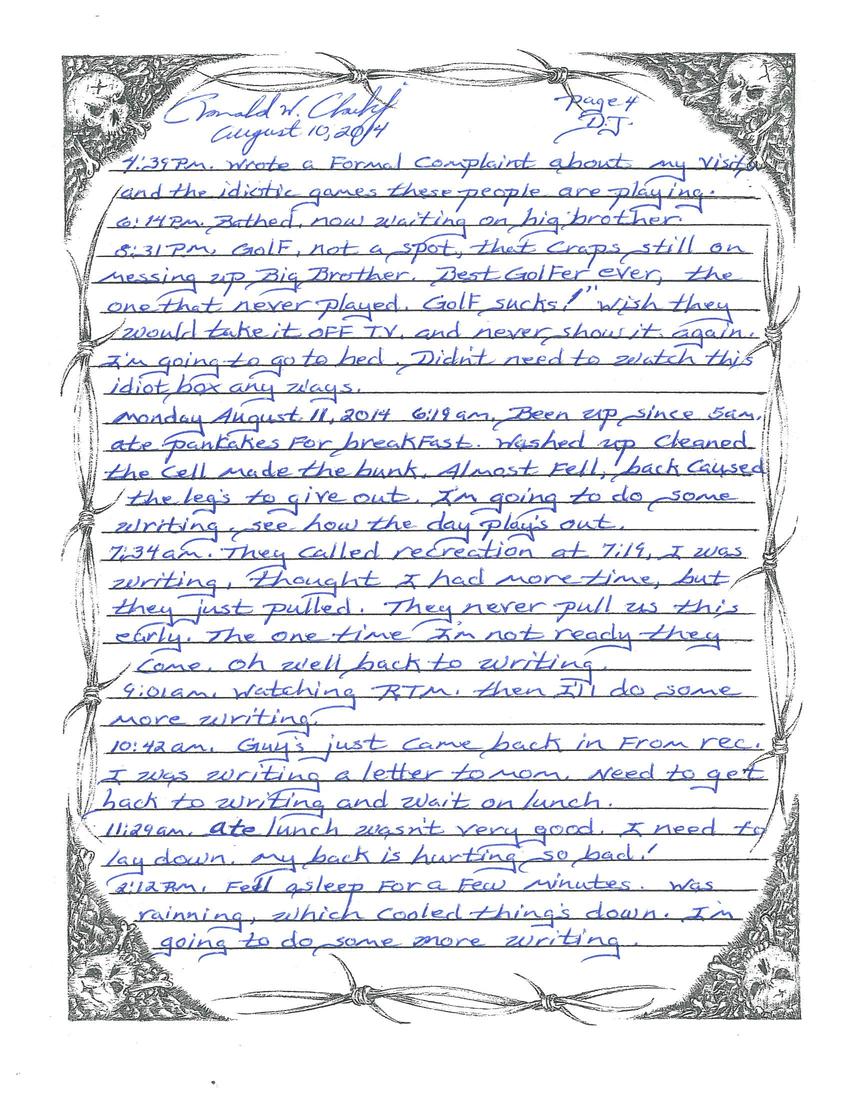 Ronald W. Clark Jr
page 4
August 10, 2014
DJ.
4:39 P.M. Wrote a Formal Complaint about my visits
and the idiotic games these people are playing.
6:14 P.M. Bathed, now waiting on big brother.
8:31 P.M. Golf, not a spot, that craps still on
messing up Big Brother. Best Golfer ever, the
one that never played. Golf sucks!" wish they
would take it off TV. and never show it again.
I'm going to go to bed. Didn't need to watch this
idiot box any ways.
Monday August 11, 2014 6:19 am. Been up since 5am.
ate pantakes For breakfast. Washed up cleaned
the cell made the bunk. Almost Fell, back caused
the leg's to give out. I'm going to do some
writing. see how the day play's out.
7:34 am. They called recreation at 7:19, I was
writing, thought I had more time, but
they just pulled. They never pull us this
early. The one time I'm not ready they
come. Oh well back to writing.
9:01 am. Watching RTM. then I'll do some
more writing.
10:42 am. Guy's just came back in From rec.
I was writing a letter to mom. Need to get
back to writing and wait on lunch.
11:29 am. ate lunch wasn't very good. I need to
lay down. my back is hurting so bad!
2:12 P.M. Fell asleep For a Few minutes. was
rainning, which cooled thing's down. I'm
going to do some more writing.